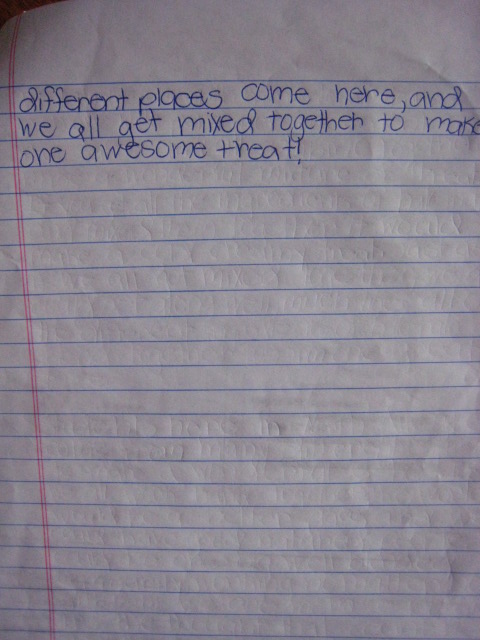 different places come here, and
we all get mixed together to make
one awesome treat!